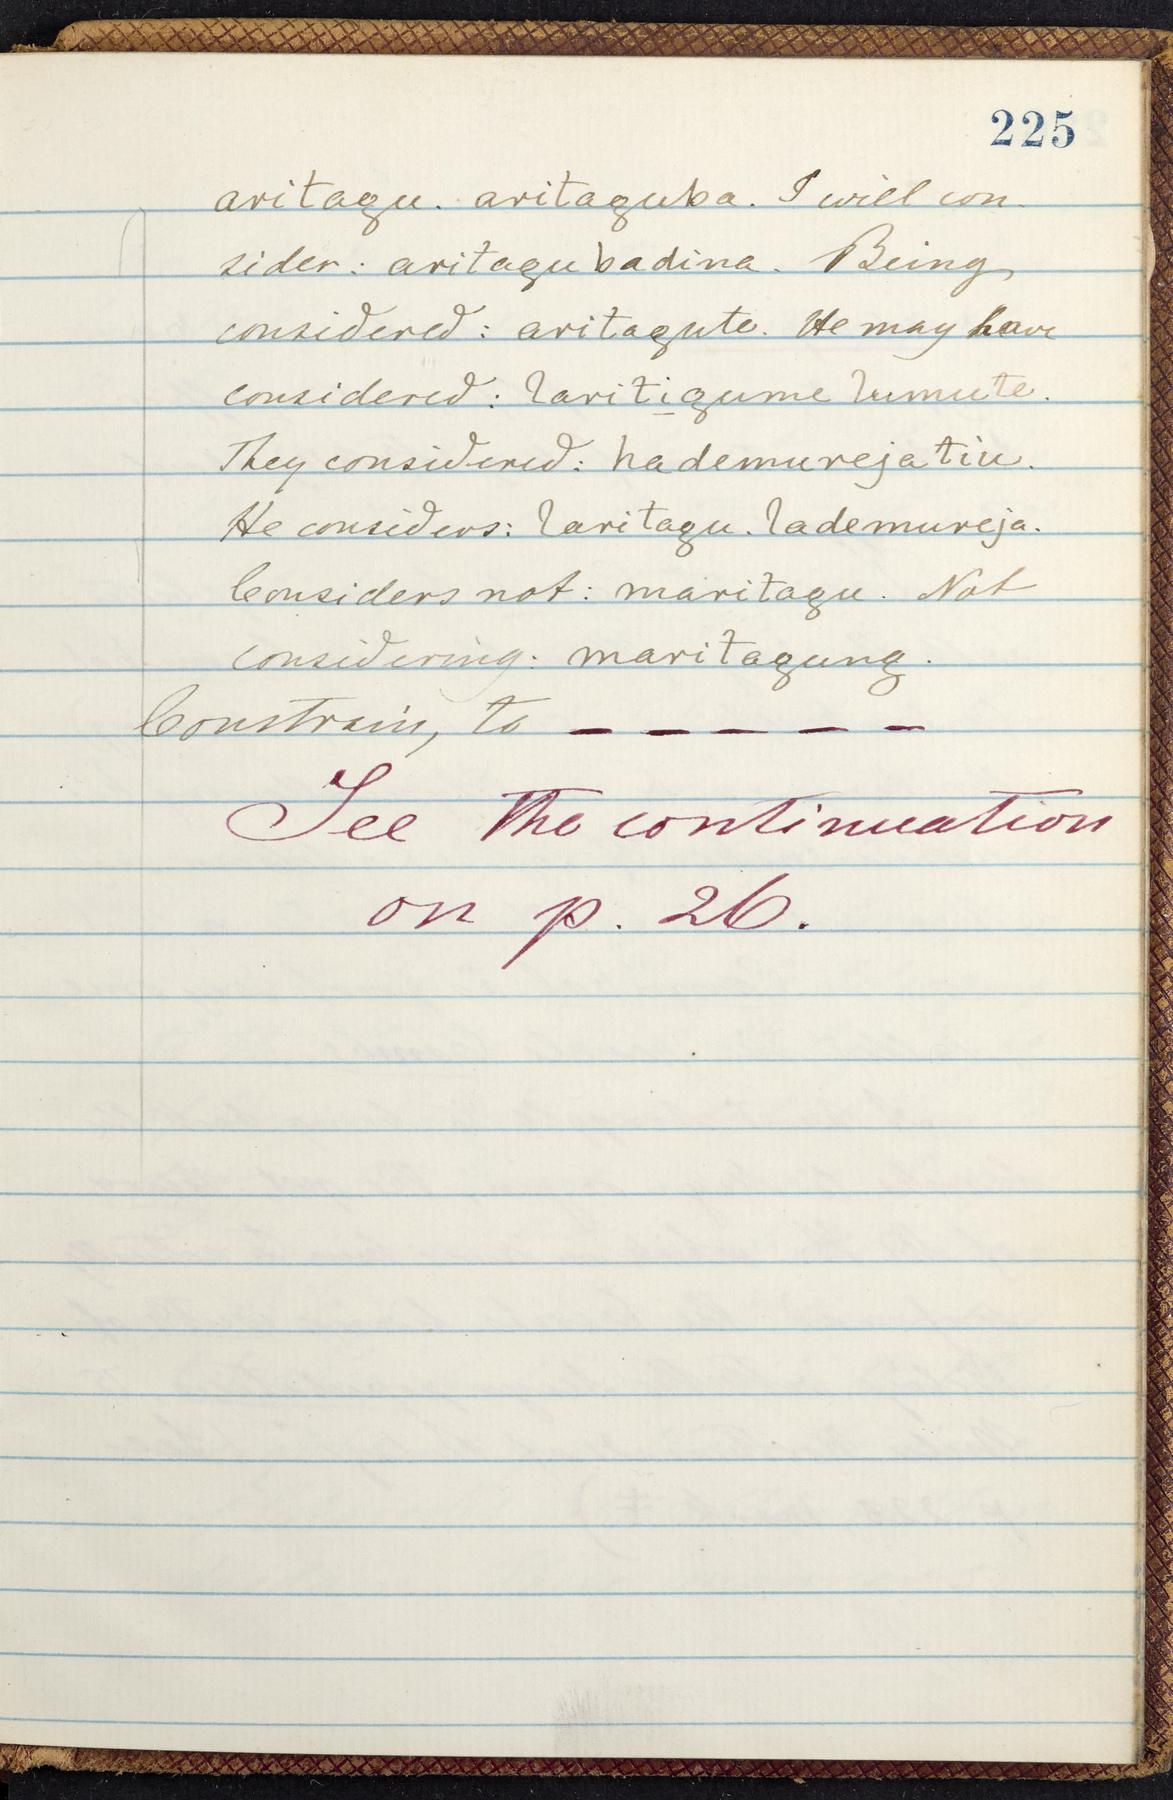 225
aritagu. aritaguba. I will con-
sider: aritagubadina. Being
considered: aritagute. He may have
considered: laritigume lumute.
They considered: hademurejatiu.
He considers: laritagu. lademureja.
Considers not: maritagu. Not
considering: maritagung.
Constrain, to – – – – –
See the continuation
on p. 26.